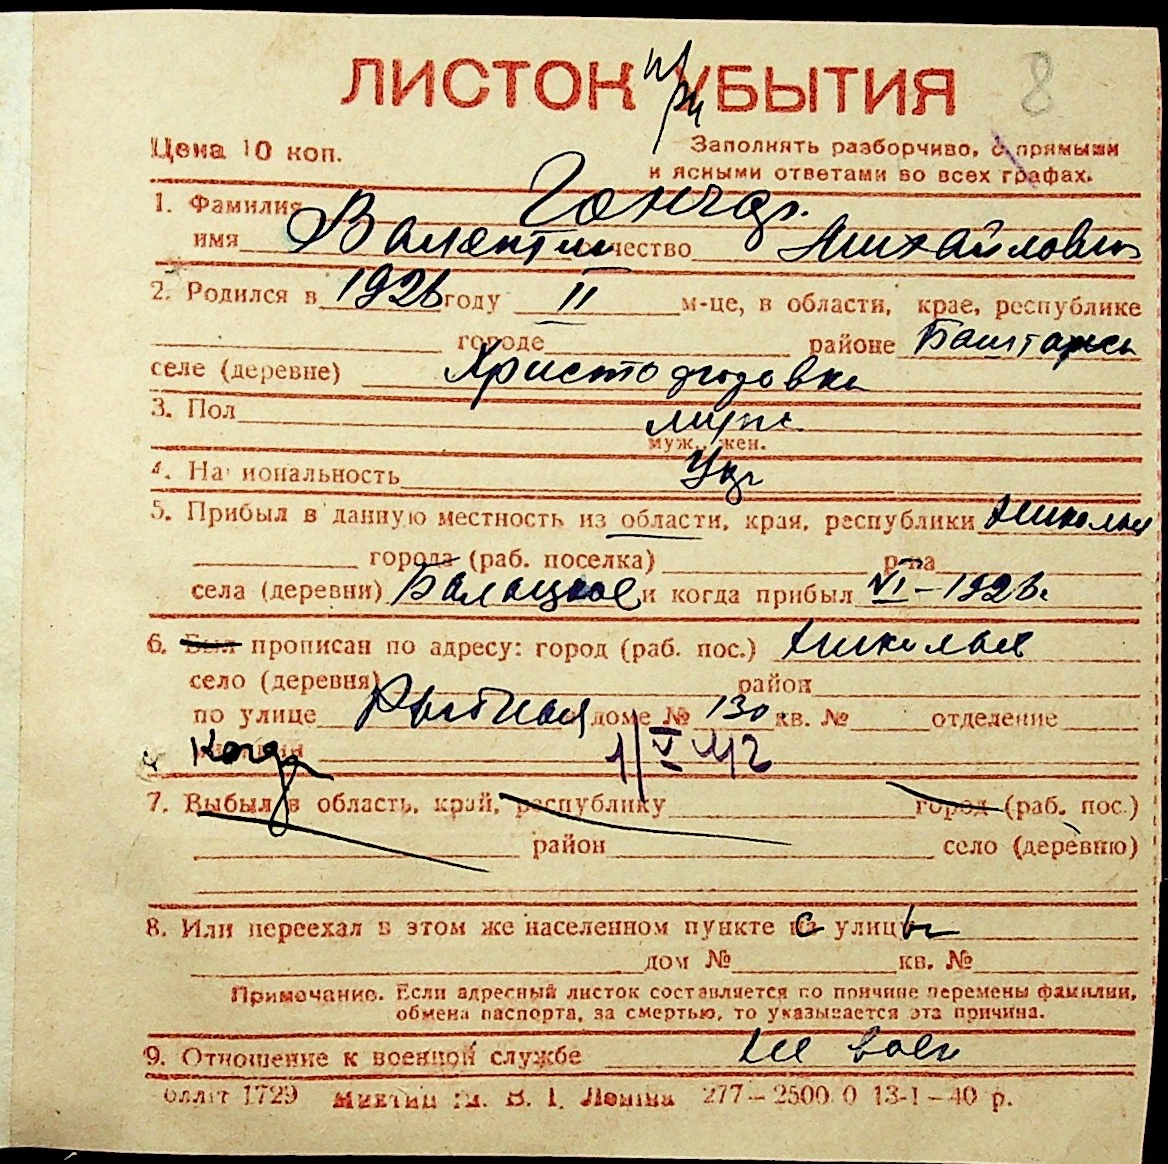 ЛИСТОК при УБЫТИЯ 8
Цена 10 коп. Заполнять разборчиво, с прямыми
и ясными ответами во всех графах.
1. Фамилия Гончар
имя Валентин отчество Михайлович
2. Родился в 1926 году II м-це, в области, крае, республике
городе районе Баштанск
селе (деревне) Христофоровка
3. Пол муж.
муж., жен.
4. Национальность Укр
5. Прибыл в данную местность из области, края, республики Николаев
города (раб. поселка) р-на
села (деревни) Балацкое и когда прибыл VI-1926.
6. Был прописан по адресу: город (раб. пос.) Николаев
село (деревня) район
по улице Рыбная доме № 130 кв. № отделение
милиции Когда 1/V 42
7. Выбыл в область, край, республику город (раб. пос.)
район село (деревню)
8. Или переехал в этом же населенном пункте с улицы
дом № кв. №
Примечание. Если адресный листок составляется по причине перемены фамилии,
обмена паспорта, за смертью, то указывается эта причина.
9. Отношение к военной службе не воен
обллит 1729 им. В. І. Леніна 277-2500.0 13-I-40 р.